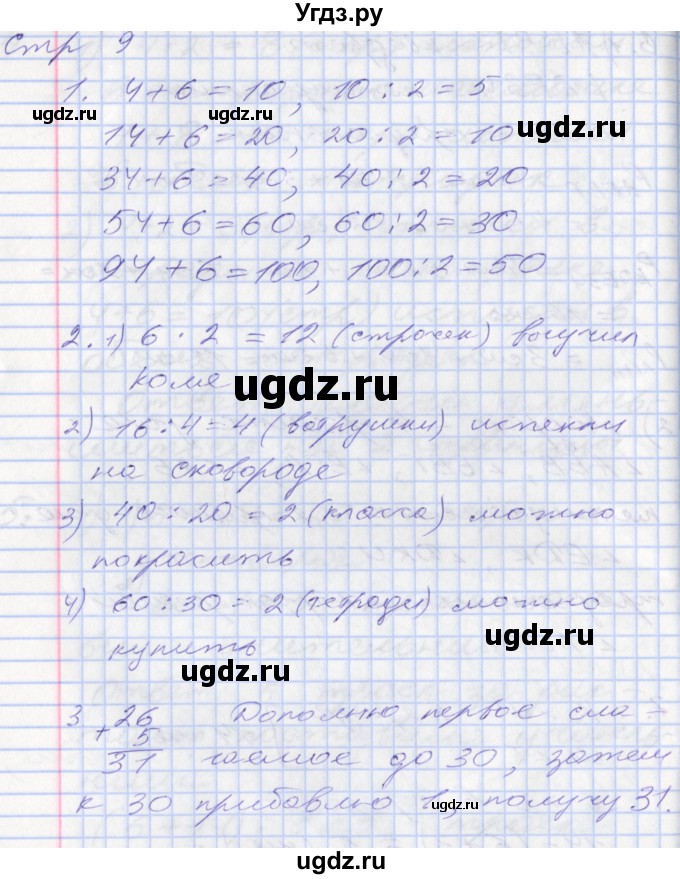 Угдз.ру
Стр 9
1. 4+6=10, 10:2=5
ugdz.ru ugdz.ru ugdz.ru
14+6=20, 20:2=10
34+6=40, 40:2=20
54+6=60, 60:2=30
94+6=100, 100:2=50
2. 1) 6 · 2 = 12 (строчек) выучил
Коля
ugdz.ru
2) 16:4=4 (ватрушки) испекли
на сковороде
3) 40:20=2 (класса) можно
покрасить
4) 60:30=2 (тетради) можно
ugdz.ru
купить
ugdz.ru
3. 26 Дополню первое сла-
+ 5
31 гаемое до 30, затем
к 30 прибавлю 1, получу 31.
ugdz.ru
ugdz.ru